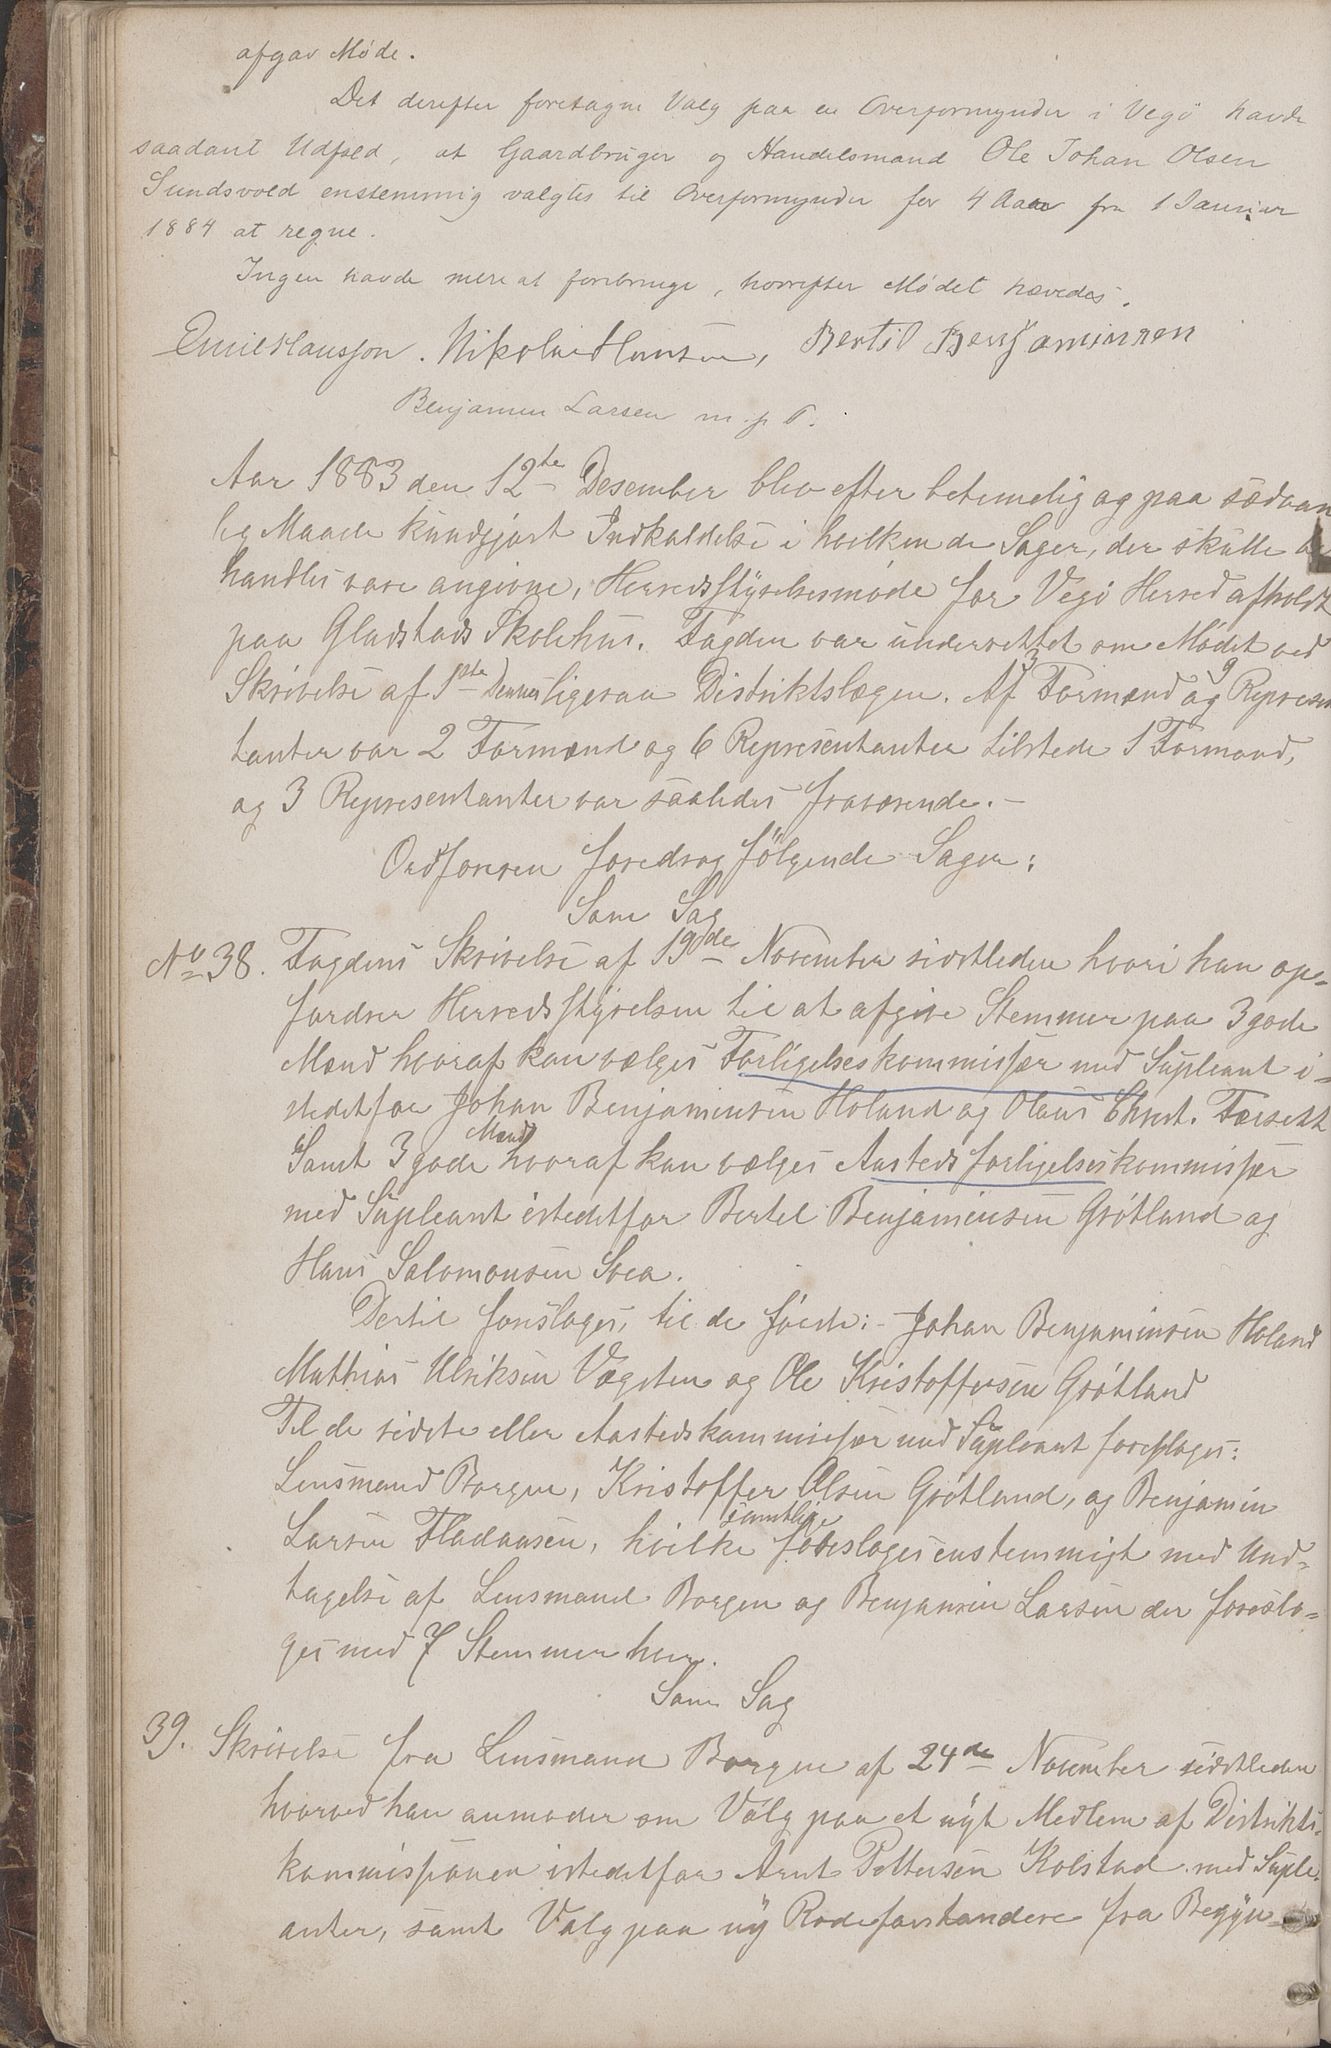 afgav Møde.
Det derefter foretagne Valg paa en Overformynder i Vegø havde
saadant Udfald, at Gaardbruger og Handelsmand Ole Johan Olsen
Sundsvold enstemmig valgtes til Overformynder for 4 Aar fra 1 Januar
1884 at regne.
Ingen havde mere at forebringe, hvorefter Mødet hævedes.
Emil Hansson. Nikolai Hansen, Bertil Benjaminsen
Benjamin Larsen m. p. P.
Aar 1883 den 12te Desember blev efter betimelig og paa sædvan
lig Maade kundgjort Indkaldelse i hvilken de Sager, der skulle be
handles vare angivne, Herredsstyrelsesmøde for Vegø Herred afholdt
paa Gladstads Skolehus. Fogden var underrettet om Mødet ved
Skrivelse af 1ste Dennes ligesaa Distriktslægen. Af 3 Formænd og 9 Represen
tanter var 2 Formænd og 6 Representanter tilstede 1 Formand,
og 3 Representanter var saaledes fraværende. –
Ordføreren foredrog følgende Sager:
Som Sag
No 38. Fogdens Skrivelse af 19de November sidstleden hvori han op-
fordrer Herredsstyrelsen til at afgive Stemmer paa 3 gode
Mænd hvoraf kan vælges Forligelseskommissær med Supleant i-
stedetfor Johan Benjaminsen Holand og Olaus Chrst. Færsett
Samt 3 gode Mænd hvoraf kan vælges Aastedsforligelseskommissær
med Supleant istedetfor Bertel Benjaminsen Grøtland og
Hans Salomonsen Svea.
Dertil foreslages, til de første:- Johan Benjaminsen Holand
Mathias Ulriksen Vægsten og Ole Kristoffersen Grøtland
Til de sidste eller Aastedskommissær med Supleant foreslages:
Lensmand Borgen, Kristoffer Olsen Grøtland, og Benjamin
Larsen Fladaasen, hvilke samtlige foreslages enstemmigt med Und-
tagelse af Lensmand Borgen og Benjamin Larsen der foresla-
ges med 7 Stemmer hver.
Som Sag
39. Skrivelse fra Lensmand Borgen af 24de November sidstleden
hvorved han anmoder om Valg paa et nyt Medlem af Distrikts-
kommissionen istedetfor Arnt Pettersen Kolstad med Suple-
anter, samt Valg paa ny Rodeforstandere fra Begyn-